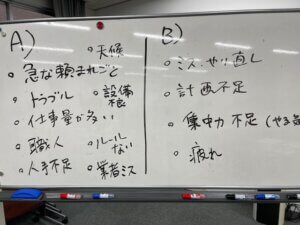 A)
・天候
・急な頼まれごと
・トラブル
・設備
・仕事量が多い
・職人
・ルール
ない
・人手不足
・業者ミス
B)
・ミス、やり直し
・計画不足
・集中力不足(やる
・疲れ